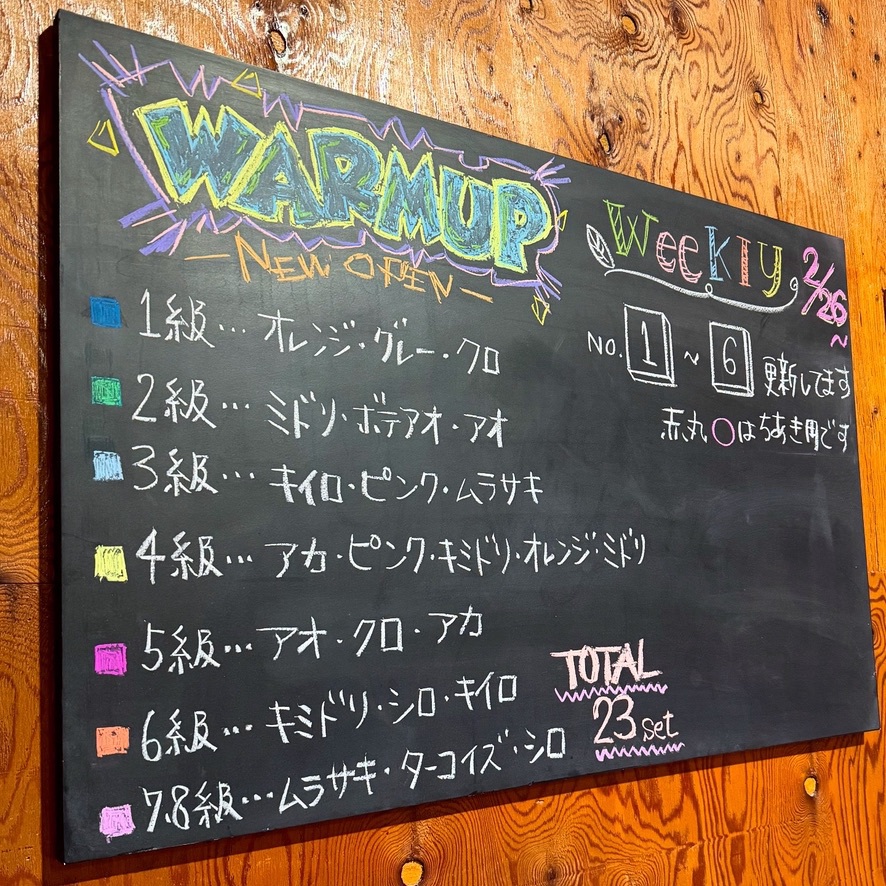 WARMUP
－NEW OPEN－
1級…オレンジ・グレー・クロ
2級…ミドリ・ボテアオ・アオ
3級…キイロ・ピンク・ムラサキ
4級…アカ・ピンク・キミドリ・オレンジ・ミドリ
5級…アオ・クロ・アカ
6級…キミドリ・シロ・キイロ
7.8級…ムラサキ・ターコイズ・シロ
TOTAL
23 set
Weekly
2/26
~
No. 1 ~ 6 更新してます
赤丸○はちあき用です